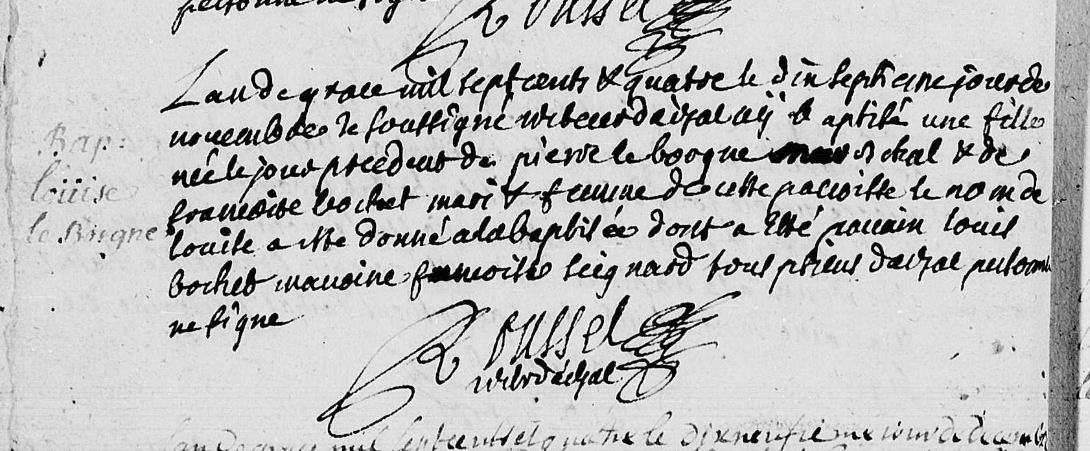 personne ne signe
Roussel
Bap:
loüise
le Borgne
Lan de grace mil sept cents & quatre le dix septiesme jour de
novembre Je soussigné vicaire dazal ay baptisé une fille
née le jour precedent de pierre le borgne & de
francoise bochet mari & femme de cette paroisse le nom de
louise a esté donné a la baptisée dont a esté parain louis
bochet maraine francoise seignard tous ptiens dazal personne
ne signe
Roussel
Lan de grace mil sept cents et quatre le dix neufieme iour de decembre